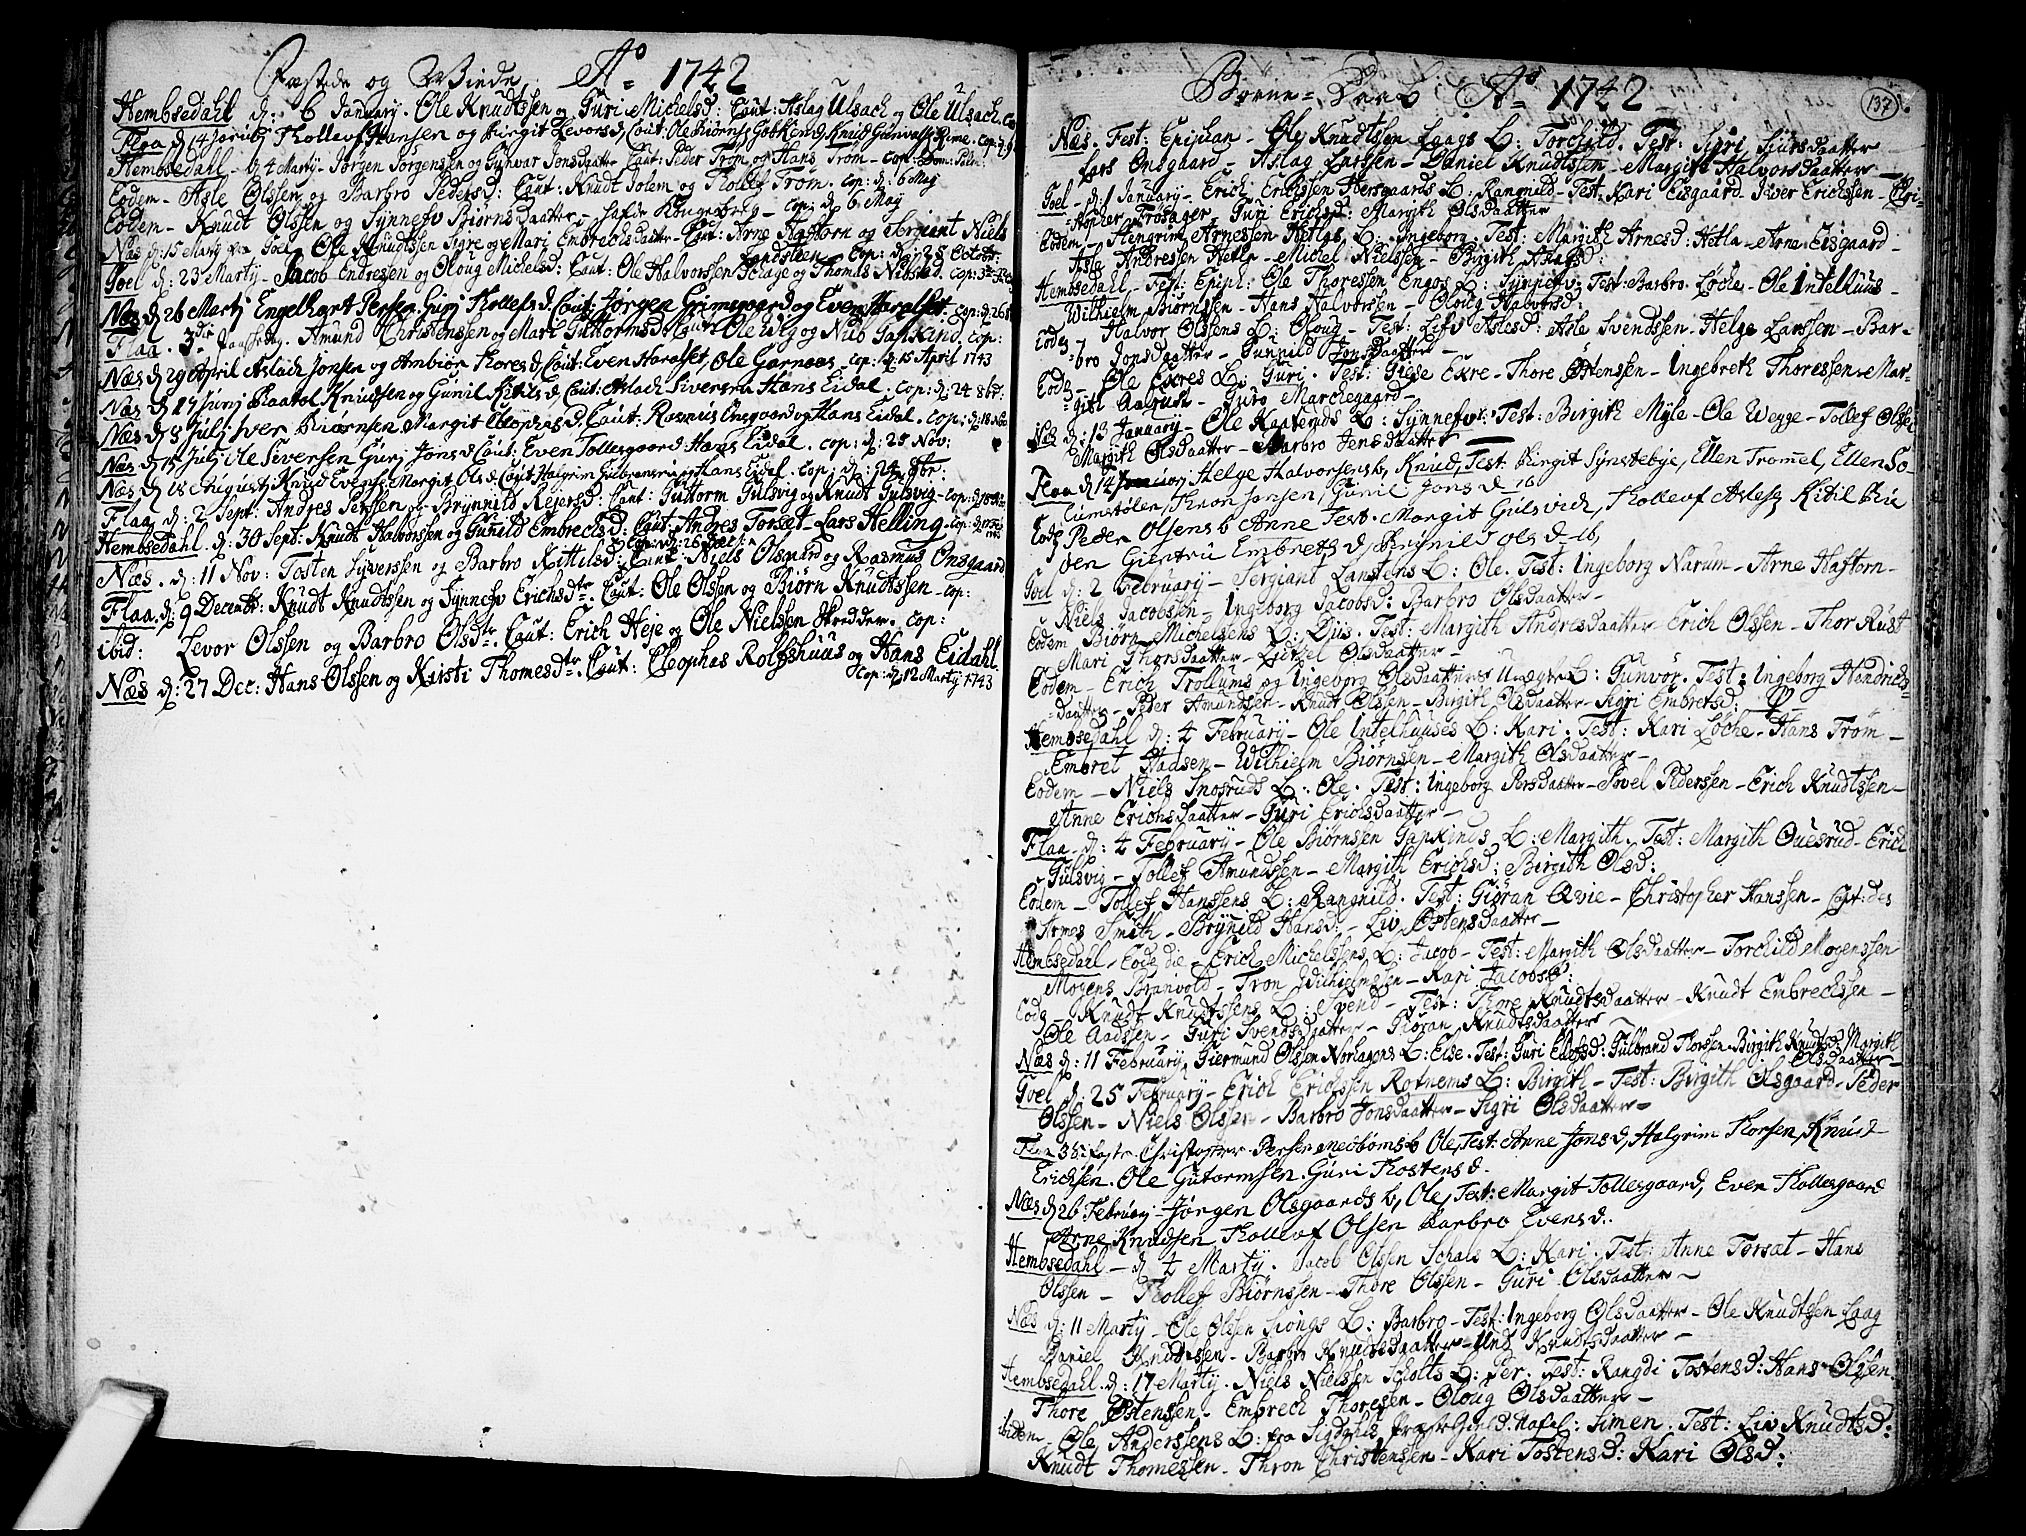 Fæstede og Wiede Aº 1742
Hembsedahl d: 6 January. Ole Knudtssen og Guri Michelsd: Caut: Aslag Ulsach og Ole Ulsach.
Flaa d 14 Tollef Hansen og Birgit Levorsd Caut: Ole Biørns. og Knud Gunvalds. cop:
Hembsedahl - d: 4 Marty - Jørgen Jørgenssen og Gunvor Jonsdaatter Caut: Peder Trøm og Hans Trøm - cop:
Eodem - Asle Olssen og Barbro Pedersd: Caut: Knudt Jolem og Tollef Trøm. cop: d: 6 May
Eodem - Knudt Olssen og Synnefv Biørnsdaatter - Kongsberg - cop: d: 6 May
Næs d: 15 Marty Goel - Ole Knudtssen Sigre og Mari Embrechsdaatter - Caut: Arne Haftorn og Sergiant Niels
Landsteen cop: d: 25 Octobr:
Goel d: 23 Marty - Jacob Endressen og Oloug Michelsd: Caut: Ole Halvorssen og Thomas cop:
Næs d 26 Martj Engelhart Persen Gurj Tollefsd. Caut: Jørgen Grimsgaard og Even Haraldset. Cop: d: 26
Flaa. Amund Christenssen og Mari Guttormsd Caut: Ole Vig og Nub Gapkind. cop:
Næs d 29 April Aslach Jonsen og Ambiør Thoresd Caut: Even Haralset, Ole Garnaas. cop: d: 15 April 1743
Næs d 17 Junj Baatol Knudtsen og Gunil Kitilsd Caut: Aslach Siversen Hans Eidal. cop: d: 24 8br:
Næs d 8 Julj Iver Biørnsen Margit Cleophasd. Caut: Rasmus Onsgaard og Hans Eidal. Cop: d: 18 Nov
Næs d 15 Julj Ole Siversen Gurj Jonsd Caut: Even Tollesgaard Hans Eidal. cop: d: 25 Nov:
Næs d 18 August Knud Evens. Margit Olsd. Caut Halgrim Gulbransen og Hans Eidal. cop: d: 24 8br:
Flaa d: 2 Sept: Andres Perssen og Brynnild Reiersd: Caut: Guttorm Gulsvig og Knudt Gulsvig - cop:
Hembsedahl. d: 30 Sept: Knudt Halvorssen og Gunild Embrechsd: Caut: Andres Torset - Lars Helling. cop:
Næs. d: 11 Nov: Tosten Syverssen og Barbro Kittilsd: Caut: Niels Olsgaard og Rasmus Onsgaard
Flaa. d: 9 Decembr: Knudt Knudtssen og Synnefv Erichsdtr. Caut: Ole Olssen og Biørn Knudtssen - cop:
ibid: Levor Olssen og Barbro Olsdtr. Caut: Erich Heje og Ole Nielssen Skredder. cop:
Næs d: 27 Dec: Hans Olssen og Kirsti Thomesdtr. Caut: Cleophas Rolfshuus og Hans Eidahl.
Cop: d: 12 Marty 1743
Børne-Daab Aº 1742
137
Næs. Fest: Epiphan - Ole Knudtssen Laags B: Torchild. Test: Sigri Siursdaatter
Lars Onsgaard - Aslag Larssen - Daniel Knudtssen - Margith Halvorsdaatter -
Goel - d: 1 January - Erich Erichssen Hersgaards B: Rangnild - Test: Kari Eisgaard - Iver Erichssen - Chri-
=stopher Frøsager - Guri Erichsd: Margith Olsdaatter
Eodem - Stengrim Arnessen Hetlas B: Ingeborg. Test: Margith Arnesd: Hetla - Arne Eisgaard -
Asle Andressen Hetla - Michel Nielssen - Birgith Aslagsd:
Hembsedahl - Fest: Epiph: Ole Thoressen Engos B: Synnefv: Test: Barbro Løcke - Ole Intelhuus -
Wilhelm Biørnssen - Hans Halvorssen - Oloug Halvorsd:
Eod: - Halvor Olssens B: Oloug - Test: Lifv Aslesd: Asle Svendssen - Helge Larssen - Bar-
=bro Jonsdaatter - Gunnild Jonsdaatter -
Eod: - Ole Exres B: Guri. Test: Giese Exre - Thore Østenssen - Ingebreth Thoressen - Mar-
=gith Aalrust - Guro Marchegaard -
Næs d: 13 January - Ole Kaatruds B: Synnefv: Test: Birgith Myle - Ole Wegge - Tollef Olssen
Margith Olsdaatter - Barbro Jensdaatter
Flaa d 14 Helge Halvorsens b, Knud, Test: Birgit Synstebye, Ellen Tromel, Ellen So-
Thron Jonsen, Gunil Jonsd ib
Eod: Peder Olsens b Anne Test. Margit Gulsvich, Tollef Aslesen Kitil
Giertru Embretsd, Brynild Olsd ib,
Goel d: 2 February - Sergiant Lanstens B: Ole. Test: Ingeborg Narum - Arne Haftorn -
Niels Jacobsen - Ingeborg Jacobsd: Barbro Olsdaatter -
Eodem Biørn Michelsens B: Djis. Test: Margith Andresdaatter - Erich Olssen - Thor Rust
Mari Thorsdaatter - Olsdaatter -
Eodem - Erich Trollums og Ingeborg Olsdaatters B: Gunvor. Test: Ingeborg Hendrichs-
=daatter - Peder Amundsen - Knudt Olssen - Birgith Olsdaatter - Sigri Embretsd:
Hembsedahl d: 4 February - Ole Intelhuuses B: Kari. Test: Kari Løche - Hans Trøm -
Embret Hadsen - Wilhielm Biørnsen - Margith Olsdaatter -
Eodem - Niels Snosruds B: Ole. Test: Ingeborg Persdaatter - Povel Pederssen - Erich Knudtssen -
Anne Erichsdaatter - Guri Erichsdaatter -
Flaa - d: 4 February - Ole Biørnsen Gapkinds B: Margith. Test: Margith Ouesrud - Erich
Gulsvig - Tollef Amundssen - Margith Erichsd: Birgith Olsd:
Eodem - Tollef Hanssens B: Rangnild. Test: Giøran Qvie - Christopher Hanssen -
Smith - Brynild Hansd: - Liv Østensdaatter -
Hembsedahl - Eode die - Erich Michelssens B: Jacob - Test: Margith Olsdaatter - Torchild Mogenssen
Mogens Branvold - Tron Wilhielmssen - Kari Jacobsd:
Eod: - Knudt Knudtssens B: Svend - Test: Thore Knudtsdaatter - Knudt Embrechsen -
Ole Aadssen - Guri Svendsdaatter - Giøran Knudtsdaatter
Næs d: 11 February Giermund Olssen Norhagens B: Else. Test: Guri Elefsd: Gulbrand Thorssen - Birgith Knudtsd: Margith
Olsdaatter -
Goel d: 25 February - Erich Erichssen Rotnems B: Birgith - Test: Birgith Olsgaard - Peder
Olssen - Niels Olssen - Barbro Jonsdaatter - Sigri Olsdaatter -
Flaa Christopher Persen Medbøns b Ole, Test: Anne Jonsd, Halgrim Torsen, Knud
Erichsen. Ole Gutormsen. Guri Tostensd.
Næs d 26 Februarj - Jørgen Olsgaards b, Ole, Test: Margit Tollesgaard, Even Tollesgaard
Arne Knudsen Tollef Olsen Barbro Evensd.
Hembsedahl - d 4 Marty. Jacob Olssen Schals B: Kari. Test: Anne Torset - Hans
Olssen - Tollef Biørnssen - Thore Olssen - Guri Olsdaatter -
Næs d: 11 Marty - Ole Olssen Siongs B: Barbro - Test: Ingeborg Olsdaatter - Ole Knudtsen Laag
Daniel Knudtssen - Barbro Knudtsdaatter - Knudtsdaatter -
Hembsedahl. d: 17 Marty. Niels Nielssen Scholts B: Per. Test: Rangdi Tostensd: Hans Olssen.
Thore Østensen - Embrech Thoressen - Oloug Olsdaatter -
ibidem - Ole Anderssens B: fra Sigdahls Simen. Test: Liv Knudtsd:
Knudt Thomessen - Thron Christenssen - Kari Tostensd: Kari Olsd: